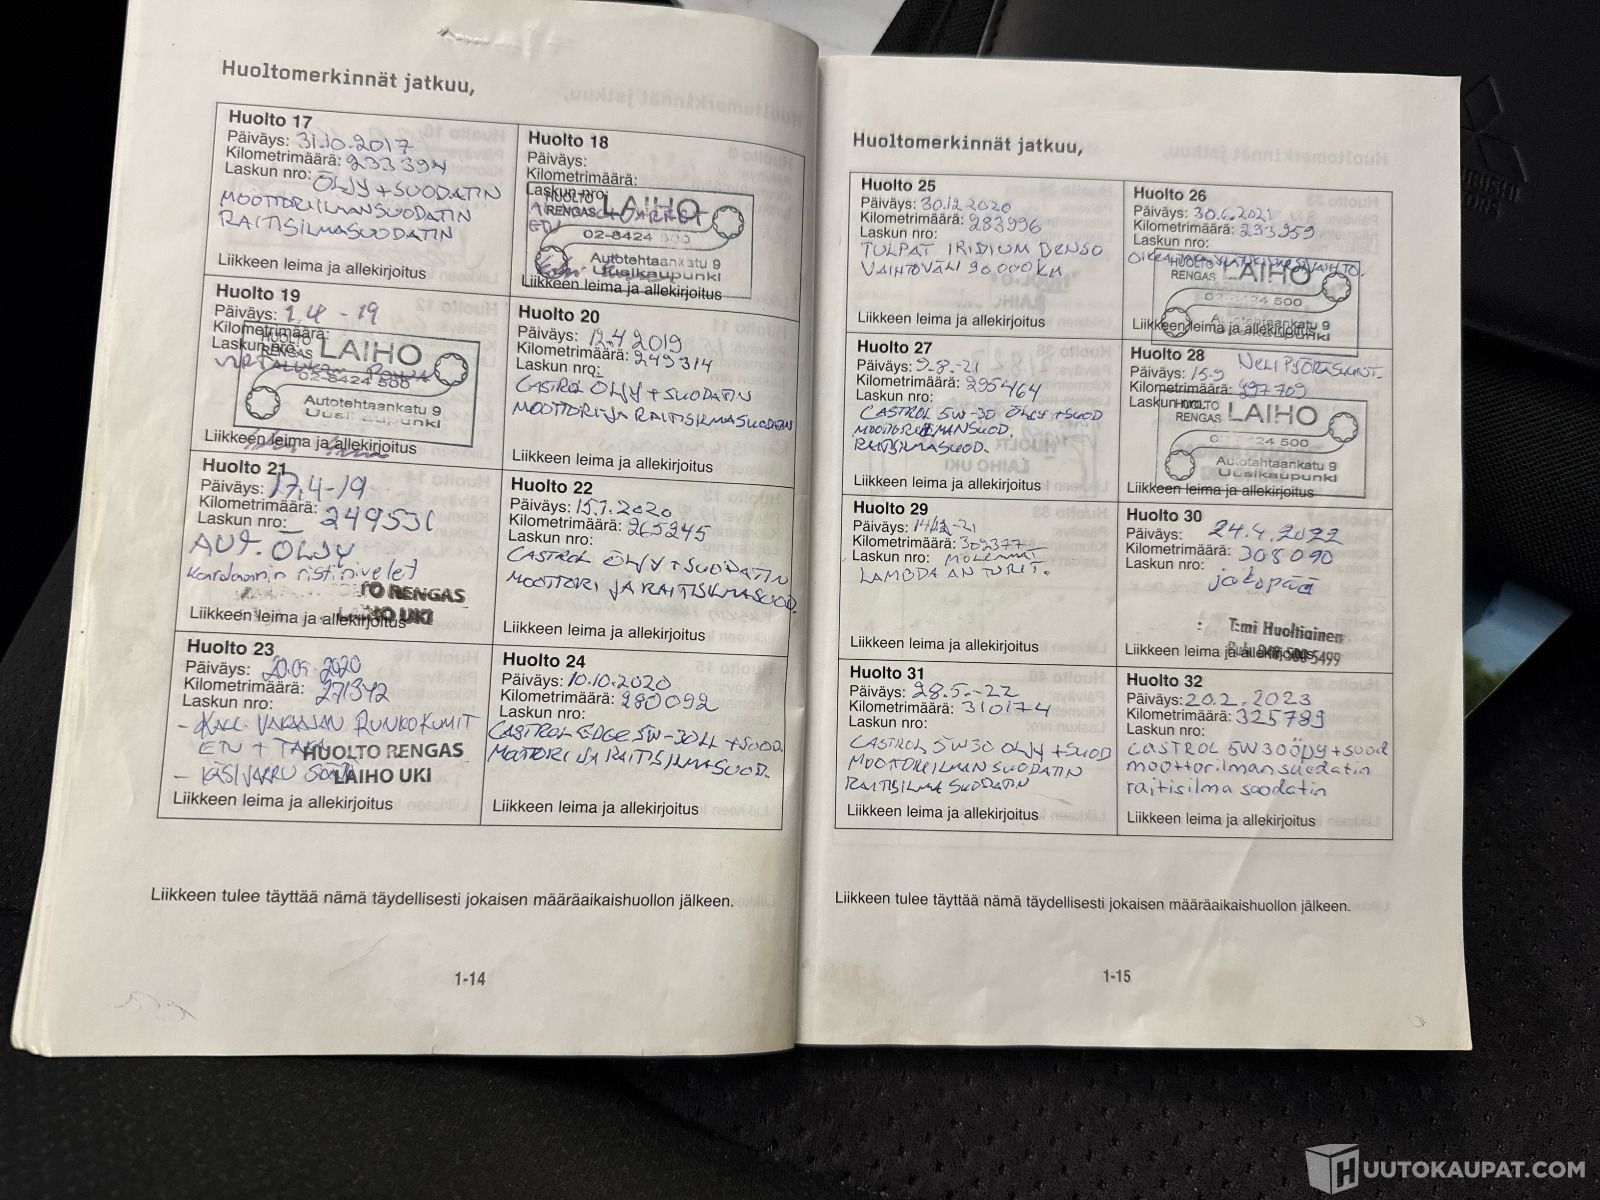 Huoltomerkinnät jatkuu,
Huolto 17
Päiväys: 31.10.2017
Kilometrimäärä: 233394
Laskun nro: ÖLJY + SUODATIN
MOOTTORIILMANSUODATIN
RAITISILMASUODATIN
Liikkeen leima ja allekirjoitus
Huolto 18
Päiväys:
Kilometrimäärä:
Laskun nro:
HUOLTO
RENGAS LAIHO
02-8424 500
Autotehtaankatu 9
Uusikaupunki
Liikkeen leima ja allekirjoitus
Huolto 19
Päiväys: 1.4 -19
Kilometrimäärä:
Laskun nro:
HUOLTO
RENGAS LAIHO
02-8424 500
Autotehtaankatu 9
Uusikaupunki
Liikkeen leima ja allekirjoitus
Huolto 20
Päiväys: 12.4 2019
Kilometrimäärä: 249314
Laskun nro:
CASTROL ÖLJY + SUODATIN
MOOTTORI JA RAITISILMASUODATIN
Liikkeen leima ja allekirjoitus
Huolto 21
Päiväys: 17.4-19
Kilometrimäärä:
Laskun nro: 249531
AUT. ÖLJY
Kardaanin ristinivelet
TO RENGAS
LAIHO UKI
Liikkeen leima ja allekirjoitus
Huolto 22
Päiväys: 15.1.2020
Kilometrimäärä: 265245
Laskun nro:
CASTROL ÖLJY + SUODATIN
MOOTTORI JA RAITISILMASUOD.
Liikkeen leima ja allekirjoitus
Huolto 23
Päiväys: 20.05.2020
Kilometrimäärä: 271342
Laskun nro:
- KALL. VAKAAJAN RUNKOKUMIT
ETU + TAKA
HUOLTO RENGAS
- KÄSIJARRU SÄÄTÖ
LAIHO UKI
Liikkeen leima ja allekirjoitus
Huolto 24
Päiväys: 10.10.2020
Kilometrimäärä: 280092
Laskun nro:
CASTROL EDGE 5W-30 LL + SUOD.
MOOTTORI JA RAITISILMASUOD.
Liikkeen leima ja allekirjoitus
Liikkeen tulee täyttää nämä täydellisesti jokaisen määräaikaishuollon jälkeen.
1-14
Huoltomerkinnät jatkuu,
Huolto 25
Päiväys: 30.12.2020
Kilometrimäärä: 283996
Laskun nro:
TULPAT IRIDIUM DENSO
VAIHTOVÄLI 90 000 KM
Liikkeen leima ja allekirjoitus
Huolto 26
Päiväys: 30.6.2021
Kilometrimäärä: 293959
Laskun nro:
OIKEA
HUOLTO
RENGAS LAIHO
02-8424 500
Autotehtaankatu 9
Uusikaupunki
Liikkeen leima ja allekirjoitus
Huolto 27
Päiväys: 9.8.-21
Kilometrimäärä: 295464
Laskun nro:
CASTROL 5W-30 ÖLJY + SUOD
MOOTTORIILMANSUOD.
RAITISILMASUOD.
Liikkeen leima ja allekirjoitus
Huolto 28 NELIPYÖRÄSUUNT.
Päiväys: 15.9
Kilometrimäärä: 297709
Laskun nro:
HUOLTO
RENGAS LAIHO
02-8424 500
Autotehtaankatu 9
Uusikaupunki
Liikkeen leima ja allekirjoitus
Huolto 29
Päiväys: 14/12-21
Kilometrimäärä: 302377
Laskun nro: MOLEMMAT
LAMBDA ANTURIT.
Liikkeen leima ja allekirjoitus
Huolto 30
Päiväys: 24.4.2022
Kilometrimäärä: 308090
Laskun nro:
jakopää
T:mi Huoltiainen
Liikkeen leima ja allekirjoitus
Huolto 31
Päiväys: 28.5.-22
Kilometrimäärä: 310174
Laskun nro:
CASTROL 5W30 ÖLJY + SUOD
MOOTTORIILMANSUODATIN
RAITISILMASUODATIN
Liikkeen leima ja allekirjoitus
Huolto 32
Päiväys: 20.2.2023
Kilometrimäärä: 325789
Laskun nro:
CASTROL 5W30 öljy + suod
moottorilmansuodatin
raitisilma suodatin
Liikkeen leima ja allekirjoitus
Liikkeen tulee täyttää nämä täydellisesti jokaisen määräaikaishuollon jälkeen.
1-15
HUUTOKAUPAT.COM